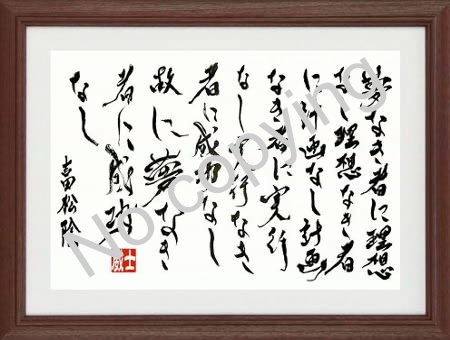 夢なき者に理想
なし理想なき者
に計画なし計画
なき者に実行
なし実行なき
者に成功なし
故に夢なき
者に成功
なし
吉田松陰
No copying